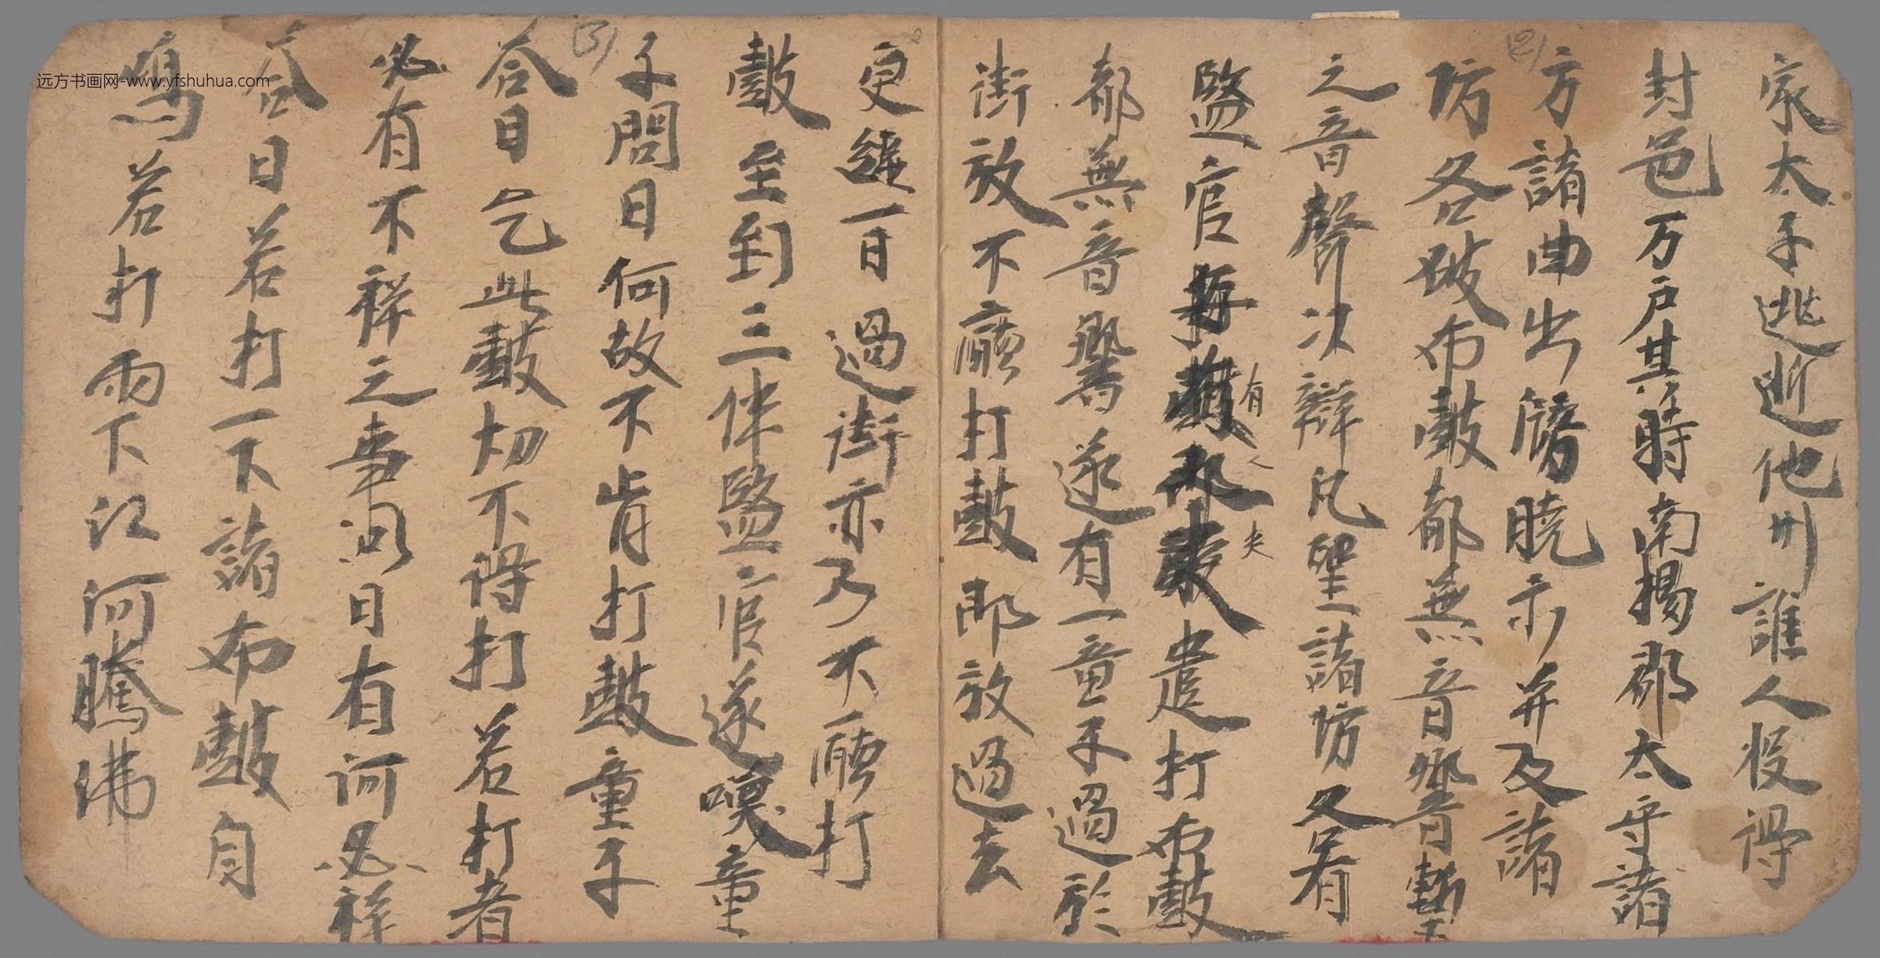 家太子逃逝他州誰人投得
封邑万户其時南揚郡太守諸
方諸曲出牓曉示并及諸
坊各破布皷都無音響暫
之音聲次辯凡聖諸坊各有
監官 遣打布皷
有
夫
都無音響遂有一童子過於
街放不廳打皷即放過去
更經一日過街亦乃不廳打
皷至到三件監官遂嘆童
子問曰何故不肯打皷童子
答曰乞此皷切不得打若打者
必有不祥之事問曰有何必祥
答曰若打一下諸布皷自
鳴若打兩下江河騰沸
(2)
(3)
远方书画网-www.yfshuhua.com